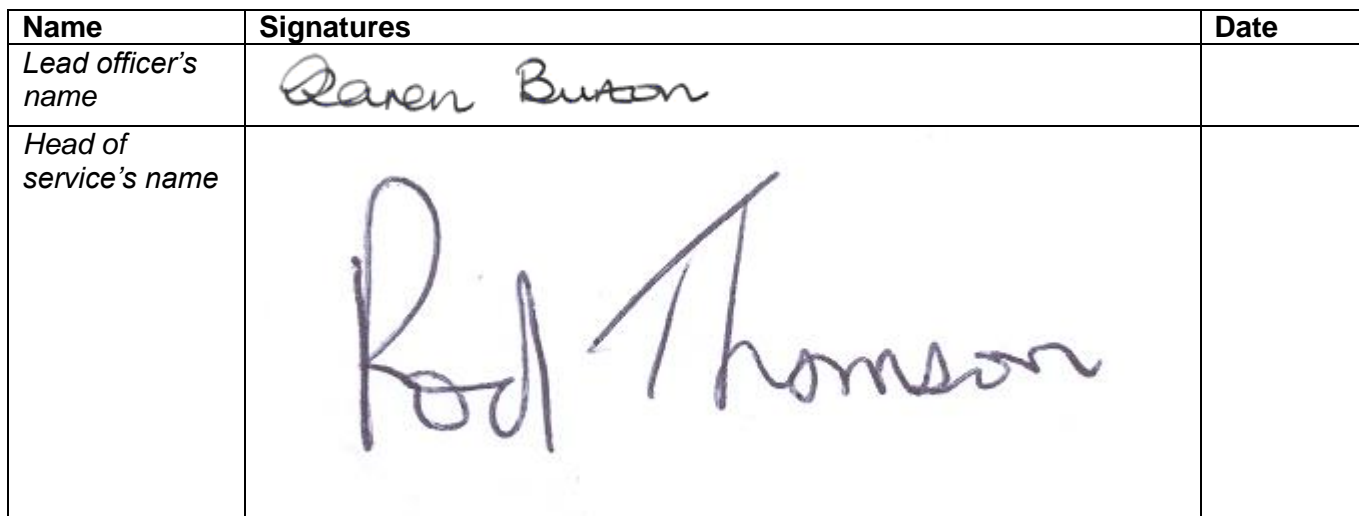 Name Signatures Date
Lead officer's
name
Karen Burton
Head of
service's name
Rod Thomson